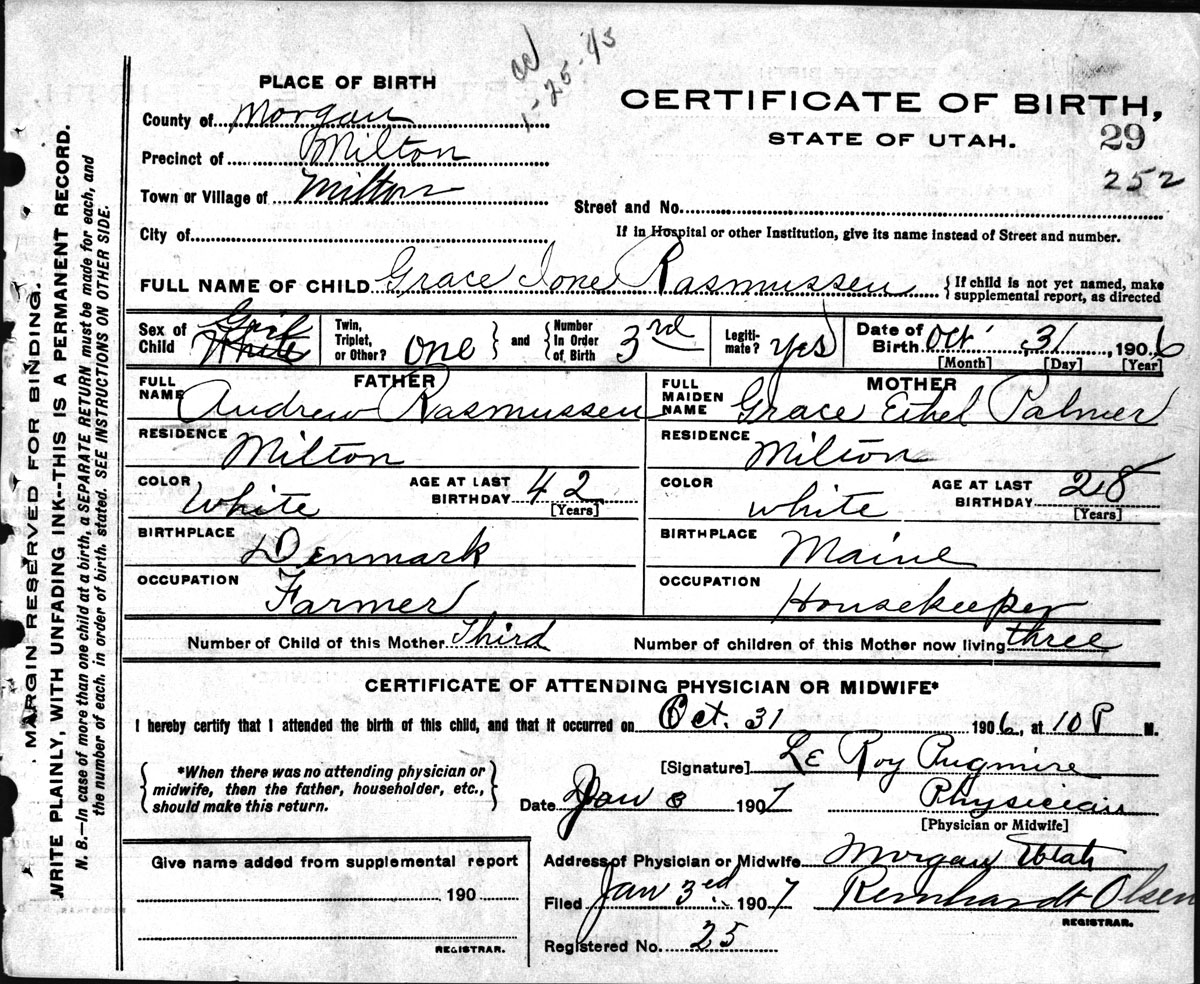 1-25-43
PLACE OF BIRTH
County of Morgan
Precinct of Milton
Town or Village of Milton
City of
CERTIFICATE OF BIRTH,
STATE OF UTAH.
29
252
Street and No.
If in Hospital or other Institution, give its name instead of Street and number.
FULL NAME OF CHILD Grace Ione Rasmussen { If child is not yet named, make
supplemental report, as directed
Sex of Child Girl White
Twin, Triplet, or Other? One } and { Number In Order of Birth 3rd
Legiti-mate? yes
Date of Birth Oct 31, 1906
[Month] [Day] [Year]
FATHER
FULL NAME Andrew Rasmussen
RESIDENCE Milton
COLOR White AGE AT LAST BIRTHDAY 42 [Years]
BIRTHPLACE Denmark
OCCUPATION Farmer
MOTHER
FULL MAIDEN NAME Grace Ethel Palmer
RESIDENCE Milton
COLOR White AGE AT LAST BIRTHDAY 28 [Years]
BIRTHPLACE Maine
OCCUPATION Housekeeper
Number of Child of this Mother Third Number of children of this Mother now living three
CERTIFICATE OF ATTENDING PHYSICIAN OR MIDWIFE*
I hereby certify that I attended the birth of this child, and that it occurred on Oct. 31 1906, at 10 P M.
{ *When there was no attending physician or
midwife, then the father, householder, etc.,
should make this return. }
[Signature] Le Roy Pugmire
Date Jan 1907 Physician
[Physician or Midwife]
Give name added from supplemental report
190
REGISTRAR.
Address of Physician or Midwife Morgan Utah
Filed Jan 3rd 1907 Reinhardt Olsen
REGISTRAR.
Registered No. 25
MARGIN RESERVED FOR BINDING.
WRITE PLAINLY, WITH UNFADING INK--THIS IS A PERMANENT RECORD.
N. B.—In case of more than one child at a birth, a SEPARATE RETURN must be made for each, and
the number of each, in order of birth, stated. SEE INSTRUCTIONS ON OTHER SIDE.